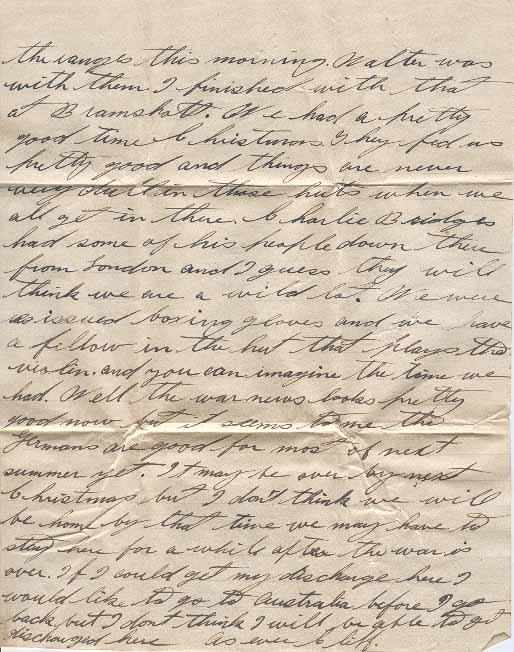 the ranges this morning. Walter was
with them I finished with that
at Bramshott. We had a pretty
good time Christmas They fed us
pretty good and things are never
very dull in these huts when we
all get in there. Charlie Bridges
had some of his people down there
from London and I guess they will
think we are a wild lot. We were
issued boxing gloves and we have
a fellow in the hut that plays the
violin. and you can imagine the time we
had. Well the war news looks pretty
good now but it seems to me the
Germans are good for most of next
summer yet. It may be over by next
Christmas but I don't think we will
be home by that time we may have to
stay here for a while after the war is
over. If I could get my discharge here I
would like to go to Australia before I go
back but I don't think I will be able to get
discharged here As ever Cliff.